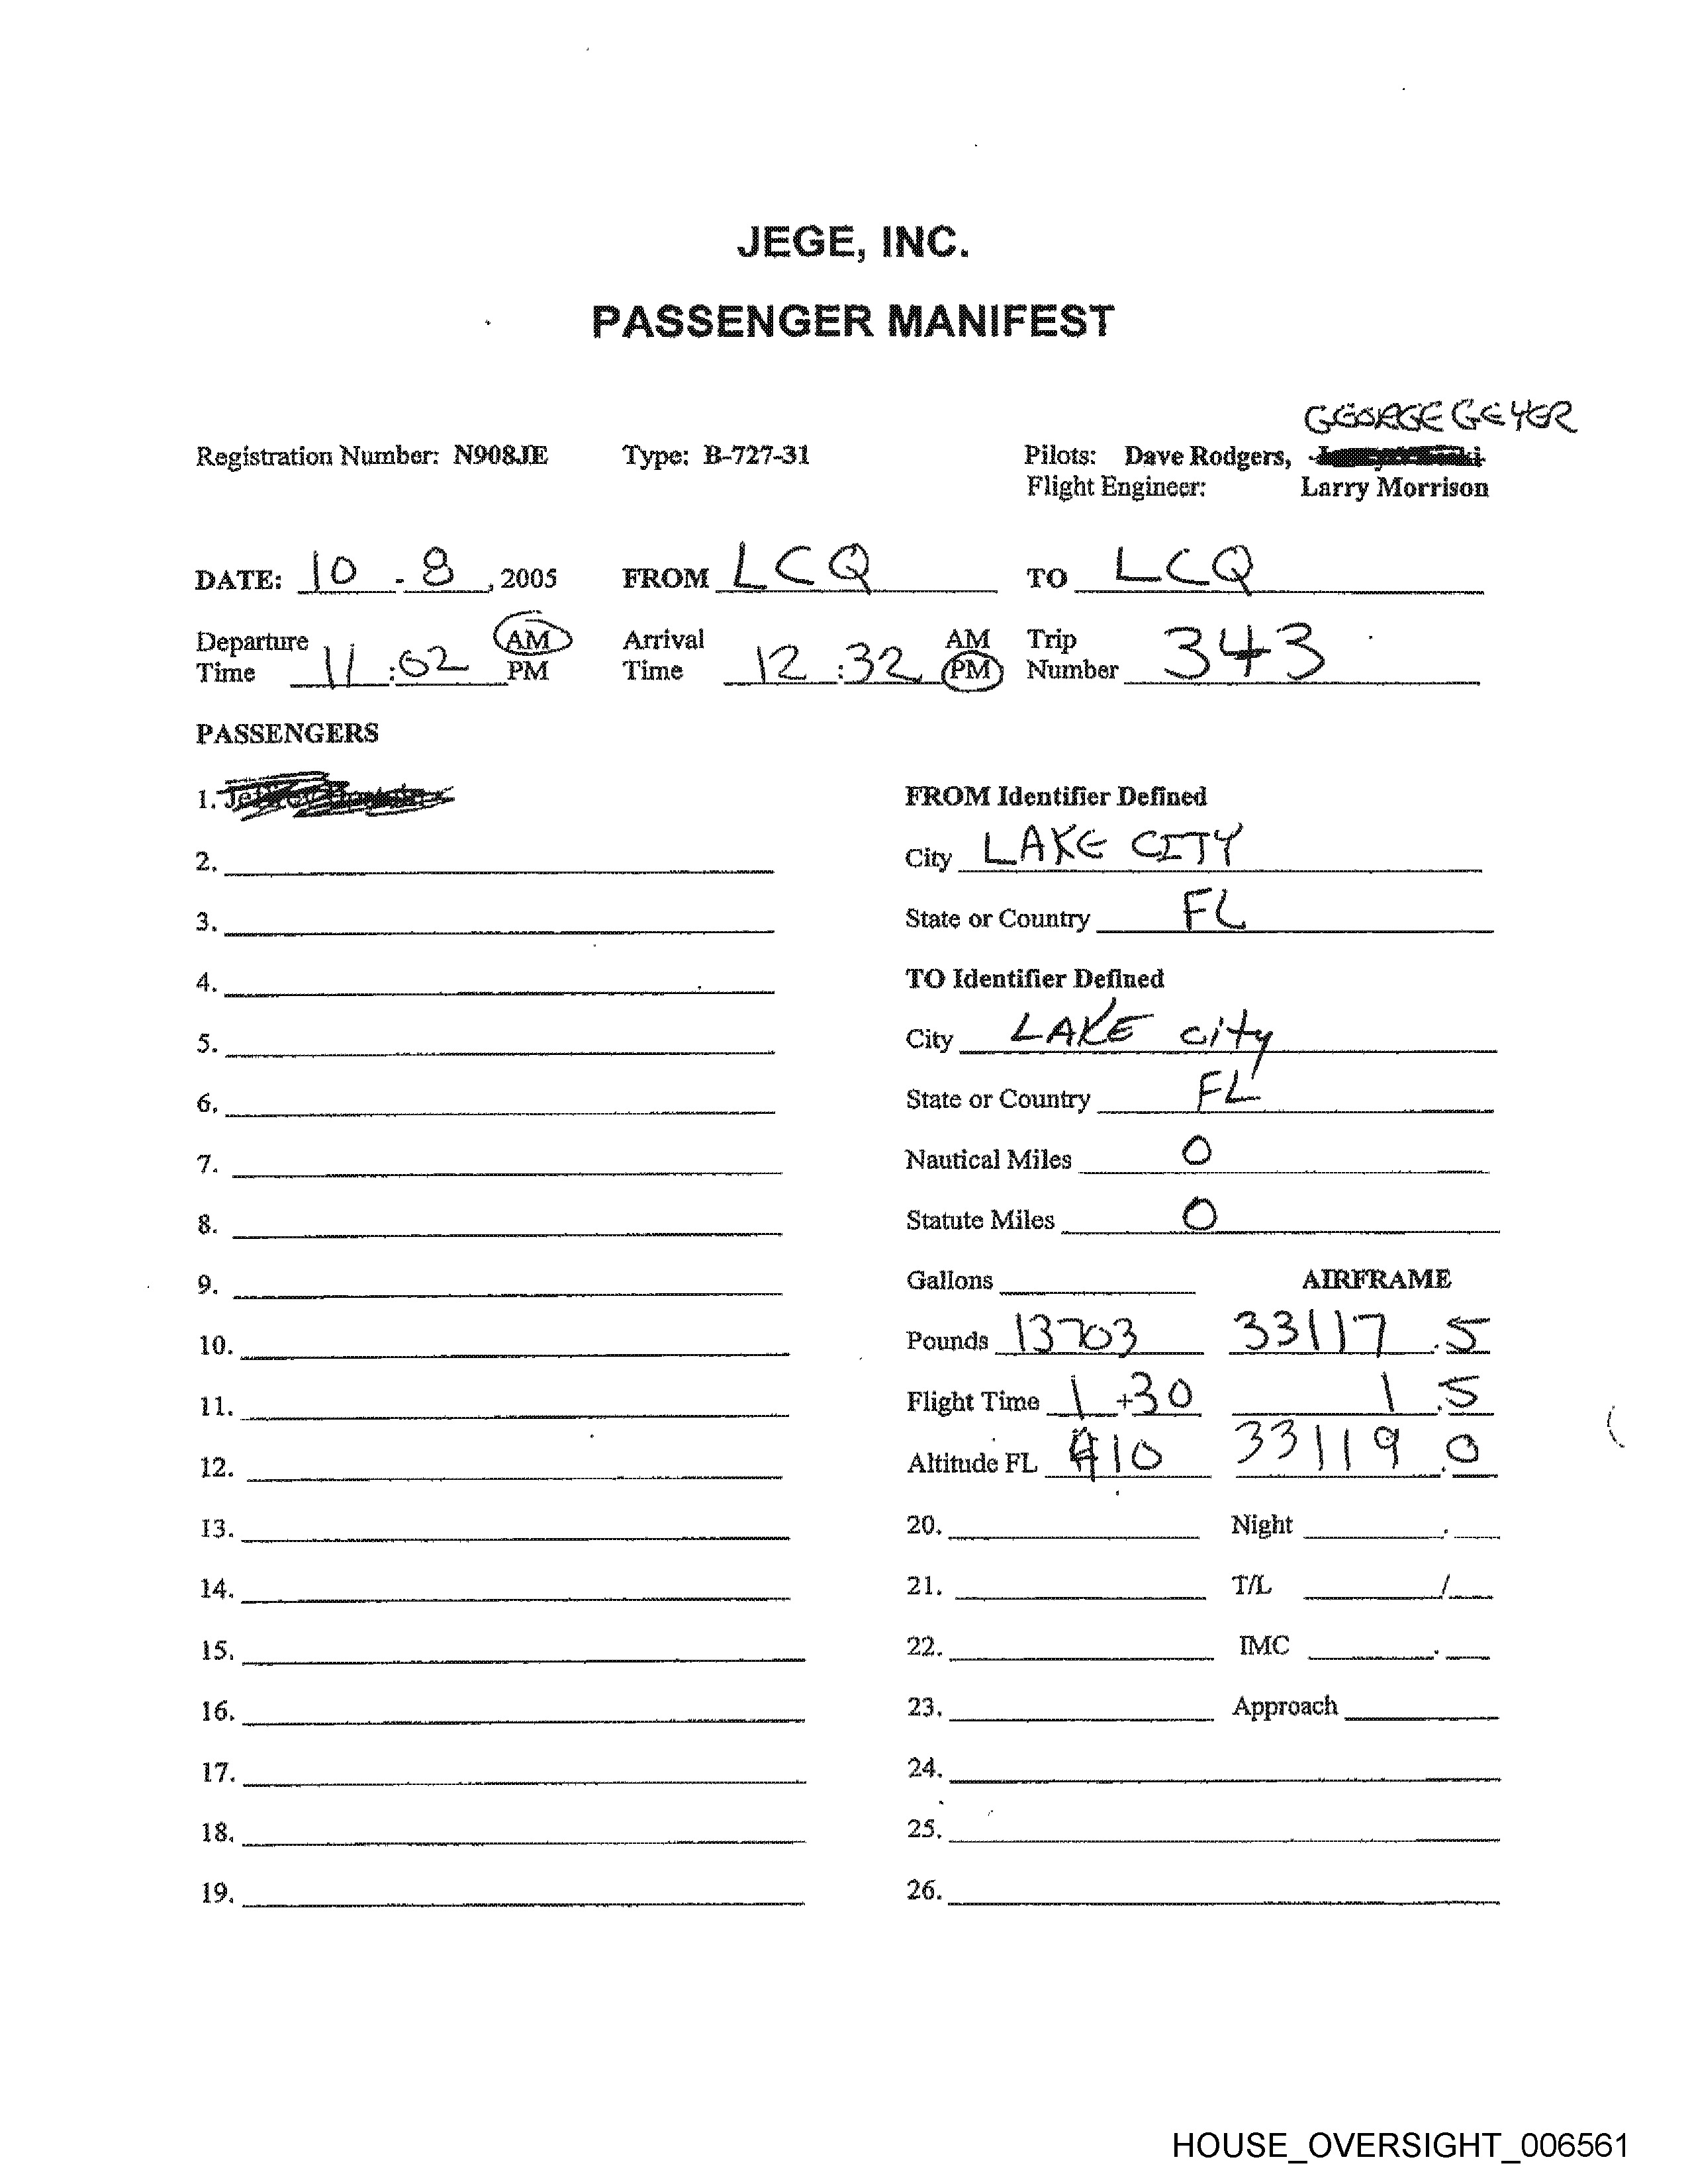 JEGE, INC.
PASSENGER MANIFEST
GEORGE GEYER
Registration Number: N908JE Type: B-727-31 Pilots: Dave Rodgers,
Flight Engineer: Larry Morrison
DATE: 10 - 8, 2005 FROM LCQ TO LCQ
Departure Time 11:02 AM PM Arrival Time 12:32 AM PM Trip Number 343
PASSENGERS
1.
2.
3.
4.
5.
6.
7.
8.
9.
10.
11.
12.
13.
14.
15.
16.
17.
18.
19.
FROM Identifier Defined
City LAKE CITY
State or Country FL
TO Identifier Defined
City LAKE city
State or Country FL
Nautical Miles 0
Statute Miles 0
Gallons AIRFRAME
Pounds 13703 33117.5
Flight Time 1+30 1.5
Altitude FL 410 33119.0
20. Night .
21. T/L /
22. IMC .
23. Approach
24.
25.
26.
HOUSE_OVERSIGHT_006561